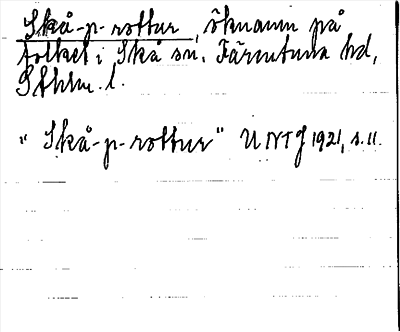 Skå-p-rottur, öknamn på
folket i Skå sn. Färentuna hd,
Sthlm. l.
"Skå-p-rottur" UNTJ 1921, s. 11.